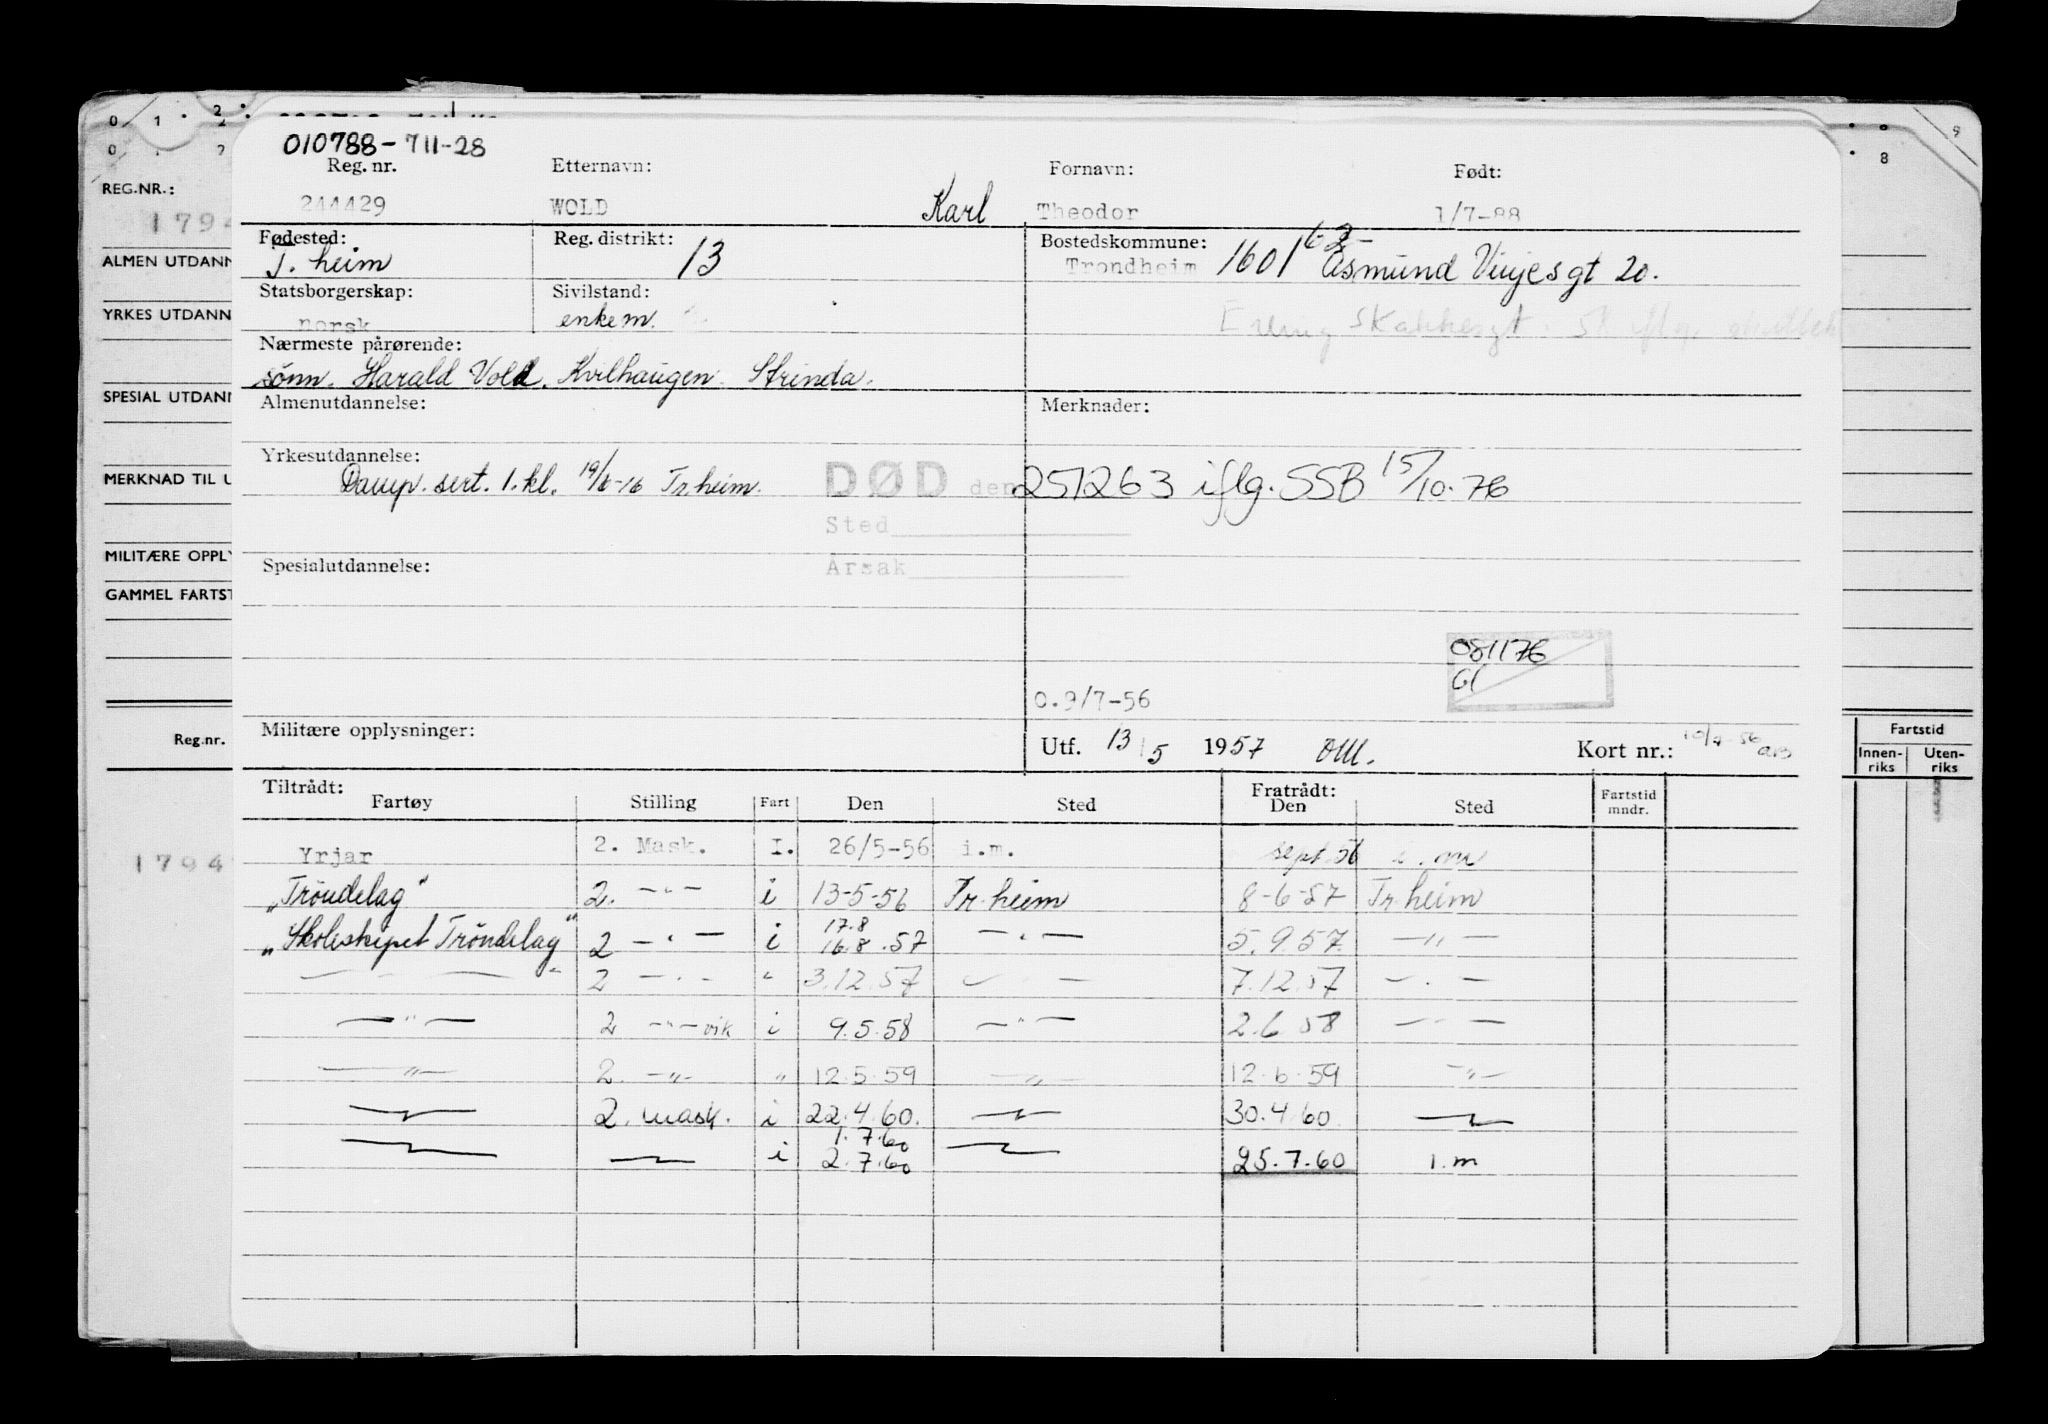 0 1 2 9
0 2 8
010788-711-28
Reg. nr. Etternavn: Fornavn: Født:
REG.NR.:
244429 WOLD Karl Theodor 1/7-88
1794
Fødested: Reg. distrikt: Bostedskommune:
T.heim 13 Trondheim 1601 Asmund Vinjesgt 20.
ALMEN UTDANN
Statsborgerskap: Sivilstand:
norsk enkem.
YRKES UTDANN
Nærmeste pårørende:
sönn. Harald Vold, Kvilhaugen. Strinda.
SPESIAL UTDANN
Almenutdannelse: Merknader:
Yrkesutdannelse:
MERKNAD TIL U
Damp. sert. 1. kl. 19/6-16 Tr.heim. DØD den 251263 iflg. SSB 15/10-76
Sted
MILITÆRE OPPLY
Spesialutdannelse: Årsak
GAMMEL FARTST
081176
Gl
0.9/7-56
Militære opplysninger: Utf. 13/5 1957 Kort nr.:
Reg.nr. Fartstid
Innen-riks Uten-riks
Tiltrådt: Fratrådt:
Fartøy Stilling Fart Den Sted Den Sted Fartstid mndr.
Yrjar 2. Mask. I. 26/5-56 i.m. sept. 56 i.m
1794
"Tröndelag" 2. —"— i 13-5-56 Tr.heim 8-6-57 Tr.heim
17.8
"Skoleskipet Tröndelag" 2 —"— i 16.8.57 —"— 5.9.57 —"—
—"— 2 —"— " 3.12.57 —"— 7.12.57 —"—
—"— 2 —"— vik i 9.5.58 —"— 2.6 58 —"—
—"— 2. —"— " 12.5.59 —"— 12.6.59 —"—
—"— 2. mask. i 22.4.60. —"— 30.4.60 —"—
1.7.60
—"— —"— i 2.7.60 —"— 25.7.60 i.m